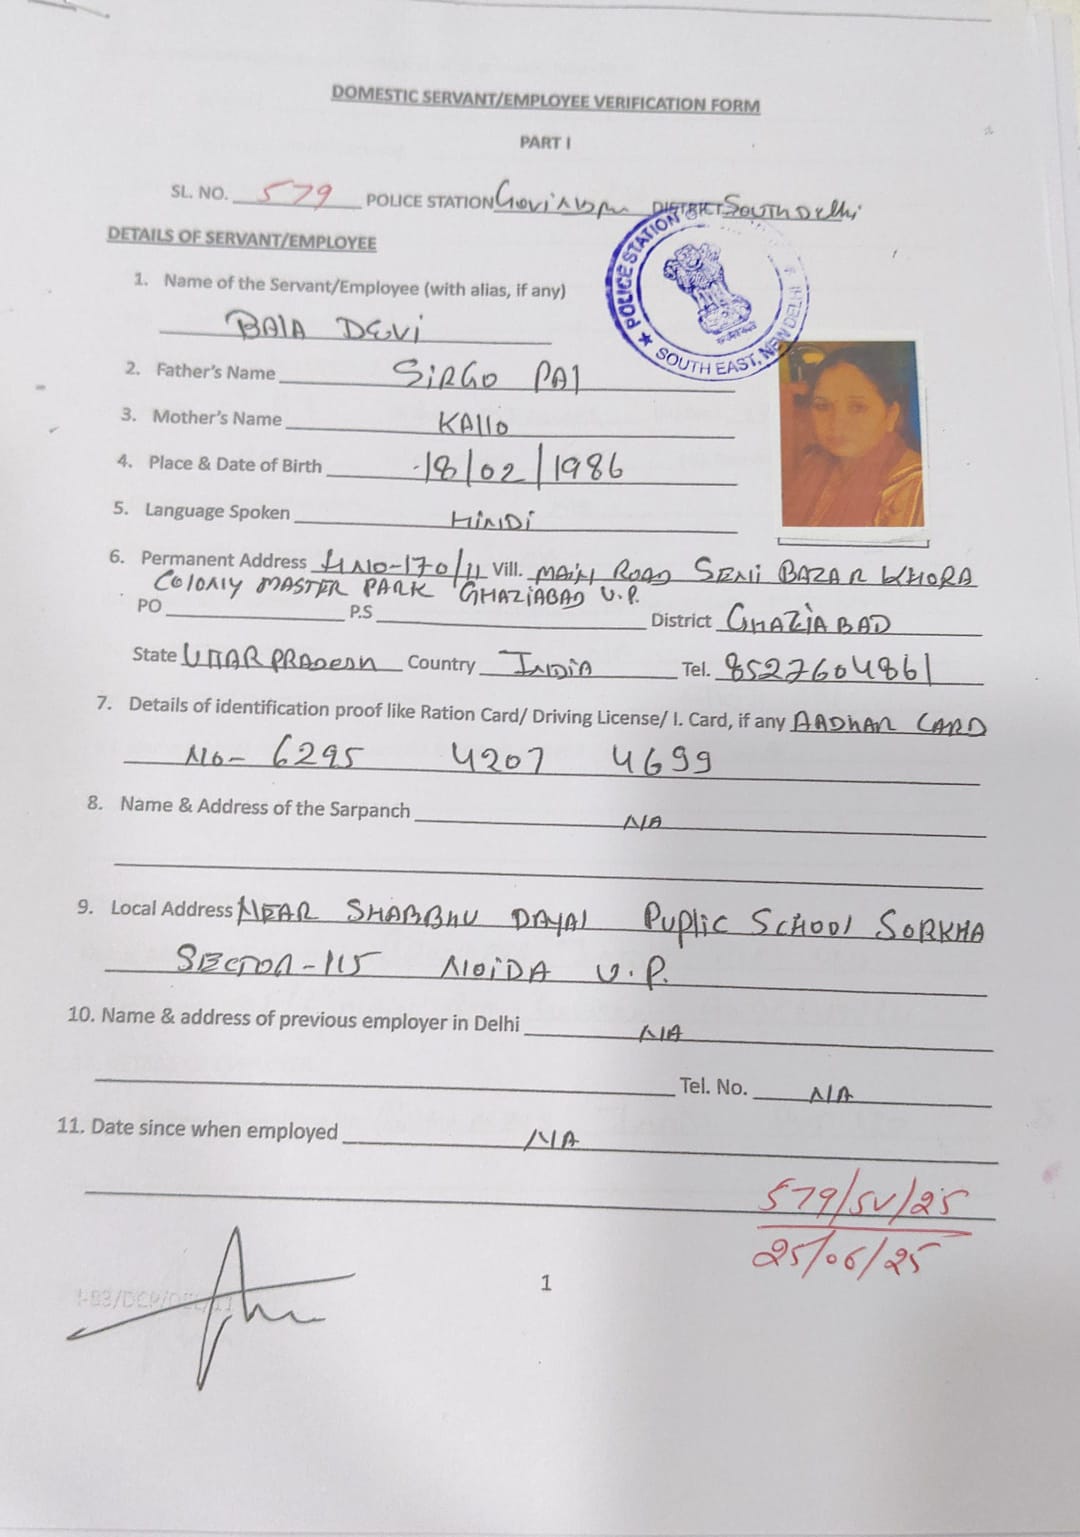 DOMESTIC SERVANT/EMPLOYEE VERIFICATION FORM
PART I
SL. NO. 579 POLICE STATION DISTRICT SOUTH DElhi
POLICE STATION
SOUTH EAST, NEW DELHI
DETAILS OF SERVANT/EMPLOYEE
1. Name of the Servant/Employee (with alias, if any)
BAlA DEVi
2. Father's Name SiRGO PAl
3. Mother's Name KAllo
4. Place & Date of Birth 18/02/1986
5. Language Spoken HINDi
6. Permanent Address H NO-170/11 Vill. MAIN ROAD SENI BAZAR KHORA
COLONY MASTER PARK GHAZiABAD U.P.
PO P.S District GHAZiABAD
State UTTAR PRADESH Country INDiA Tel. 8527604861
7. Details of identification proof like Ration Card/ Driving License/ I. Card, if any AADHAR CARD
No- 6295 4207 4699
8. Name & Address of the Sarpanch N/A
9. Local Address NEAR SHABBHU DAYAl Puplic SCHOOl SORKHA
SECTOR-115 NOiDA U.P.
10. Name & address of previous employer in Delhi N/A
Tel. No. N/A
11. Date since when employed N/A
579/SV/25
25/06/25
1